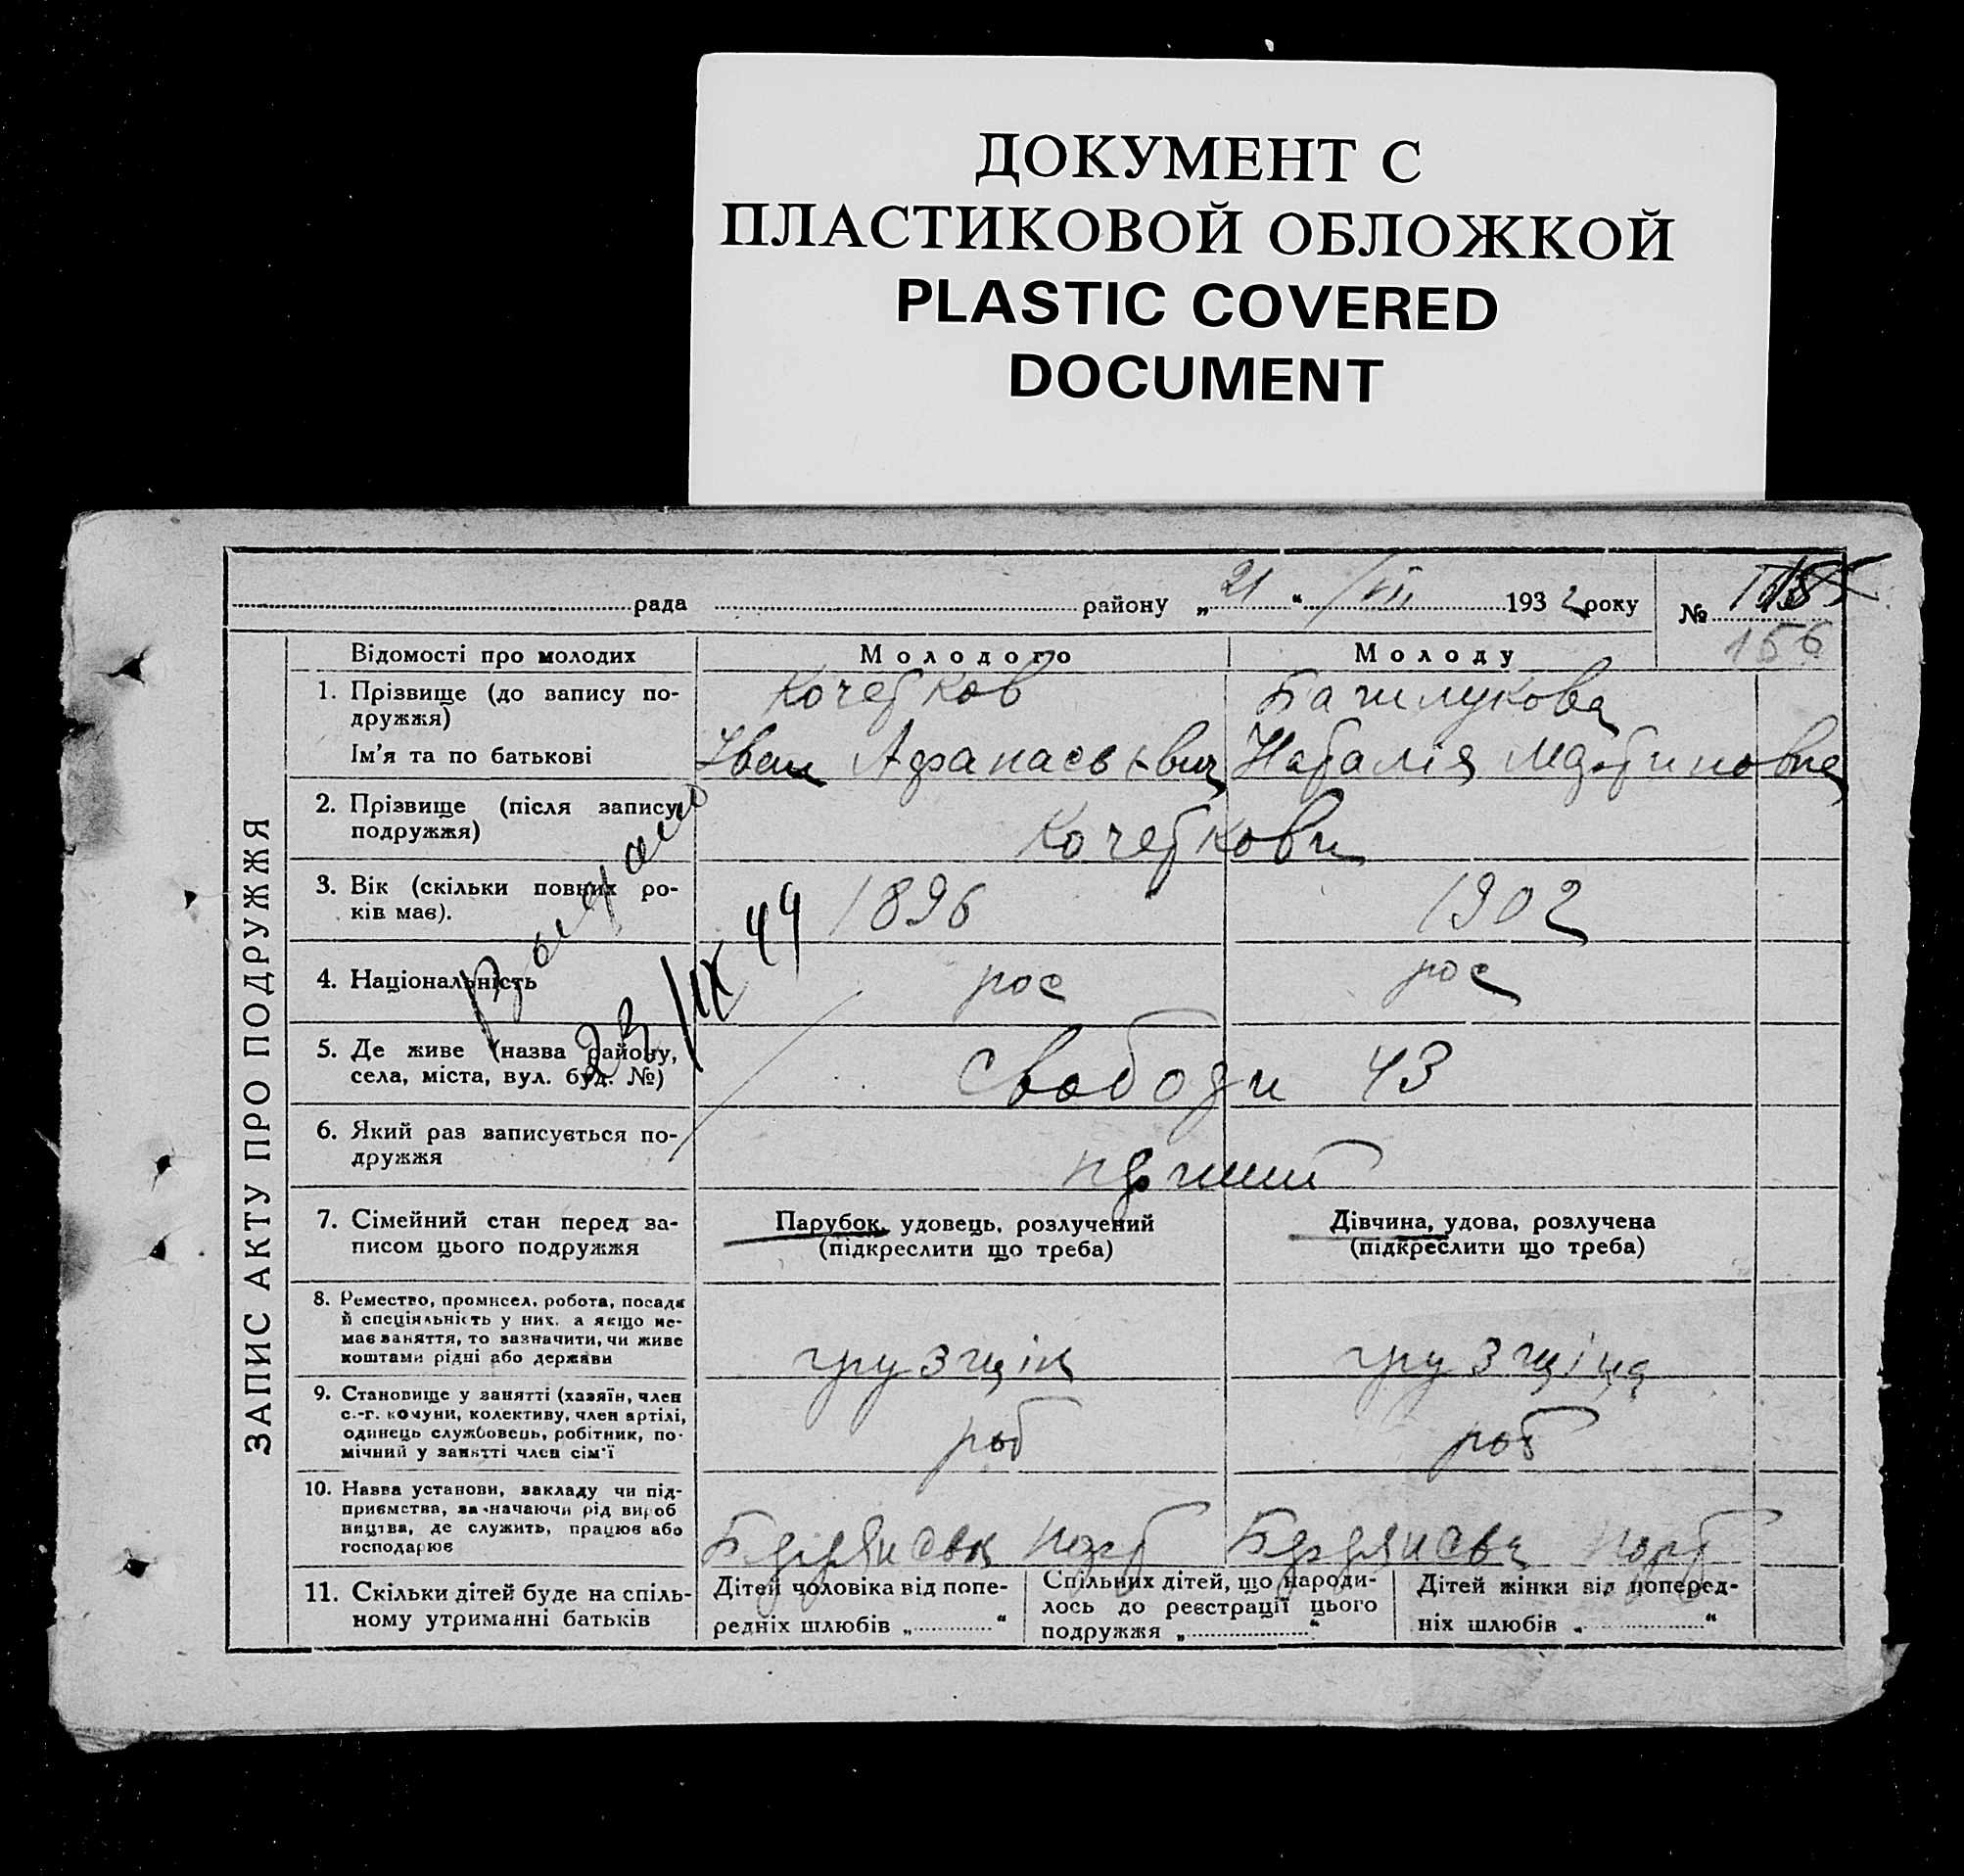 ДОКУМЕНТ С
ПЛАСТИКОВОЙ ОБЛОЖКОЙ
PLASTIC COVERED
DOCUMENT
рада району „21“ VII 1932 року №
156
ЗАПИС АКТУ ПРО ПОДРУЖЖЯ
Відомості про молодих Молодого Молоду
1. Прізвище (до запису по-
дружжя)
Кочетков
Ім'я та по батькові
Іван Афанасьевич Наталія Мартиновна
2. Прізвище (після запису
подружжя)
Кочеткови
3. Вік (скільки повних ро-
ків має).
1896 1902
23/IX 44
4. Національність
рос рос
5. Де живе (назва району,
села, міста, вул. буд. №)
Свободи 43
6. Який раз записується по-
дружжя
7. Сімейний стан перед за-
писом цього подружжя
Парубок, удовець, розлучений
(підкреслити що треба)
Дівчина, удова, розлучена
(підкреслити що треба)
8. Ремество, промисел, робота, посада
й спеціяльність у них, а якщо не-
має заняття, то зазначити, чи живе
коштами рідні або держави
грузщік грузщіца
9. Становище у занятті (хазяїн, член
с.-г. комуни, колективу, член артілі,
одинець службовець, робітник, по-
мічний у занятті член сім'ї
роб роб
10. Назва установи, закладу чи під-
приємства, зазначаючи рід вироб
ництва, де служить, працює або
господарює
порт порт
11. Скільки дітей буде на спіль-
ному утриманні батьків
Дітей чоловіка від попе-
редніх шлюбів „ “
Спільних дітей, що народи-
лось до реєстрації цього
подружжя „ “
Дітей жінки від поперед-
ніх шлюбів „ “